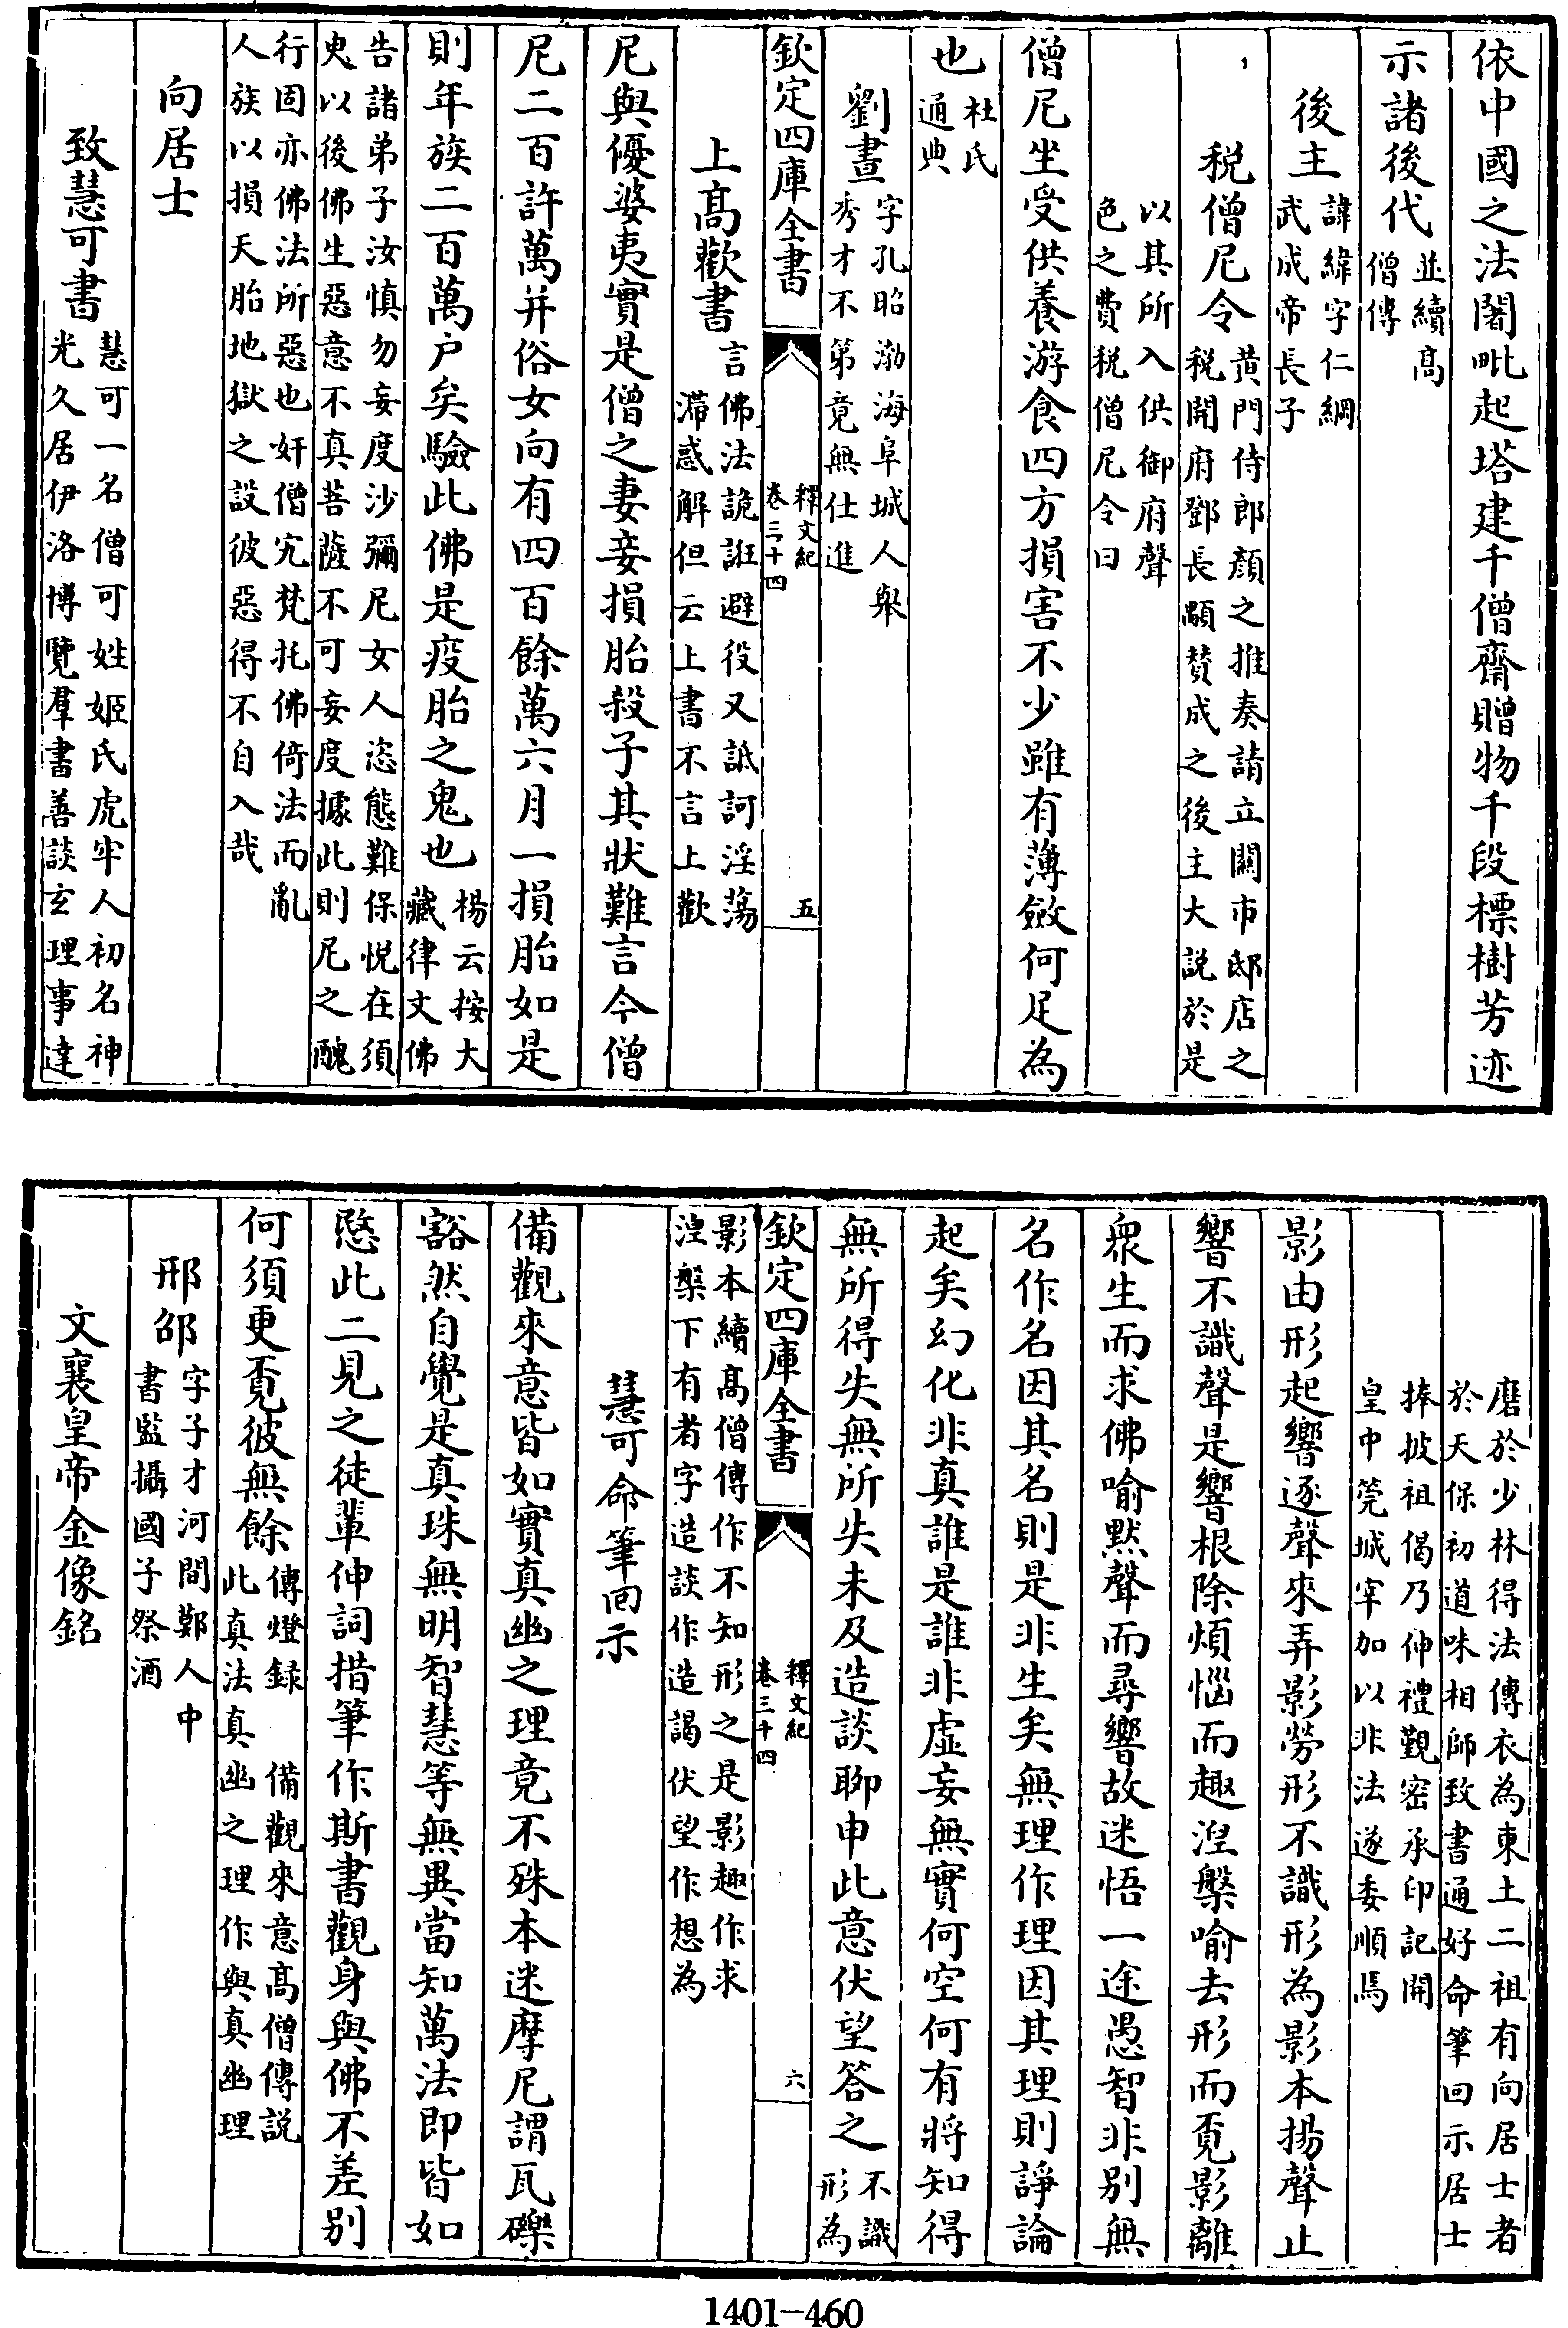 依中國之法闍毗起塔建千僧齋贈物千段標樹芳迹
示諸後代並續髙
僧傳
後主諱緯字仁綱
武成帝長子
税僧尼令黄門侍郎顔之推奏請立關市邸店之
税開府鄧長顒賛成之後主大説於是
以其所入供御府聲
色之費税僧尼令曰
僧尼坐受供養游食四方損害不少雖有薄斂何足為
也杜氏
通典
劉晝字孔昭渤海阜城人舉
秀才不第竟無仕進
欽定四庫全書
釋文紀
卷三十四
五
上髙歡書言佛法詭誑避役又詆訶淫蕩
滯惑解但云上書不言上歡
尼與優婆夷實是僧之妻妾損胎殺子其狀難言今僧
尼二百許萬并俗女向有四百餘萬六月一損胎如是
則年族二百萬户矣驗此佛是疫胎之鬼也楊云按大
藏律文佛
告諸弟子汝慎勿妄度沙彌尼女人恣態難保悦在須
臾以後佛生惡意不真菩薩不可妄度據此則尼之醜
行固亦佛法所惡也奸僧宄梵托佛倚法而亂
人族以損天胎地獄之設彼惡得不自入哉
向居士
致慧可書慧可一名僧可姓姬氏虎牢人初名神
光久居伊洛博覽羣書善談玄理事達
磨於少林得法傳衣為東土二祖有向居士者
於天保初道味相師致書通好命筆回示居士
捧披祖偈乃伸禮覲密承印記開
皇中筦城宰加以非法遂委順焉
影由形起響逐聲來弄影勞形不識形為影本揚聲止
響不識聲是響根除煩惱而趣湼槃喻去形而覓影離
衆生而求佛喻默聲而尋響故迷悟一途愚智非别無
名作名因其名則是非生矣無理作理因其理則諍論
起矣幻化非真誰是誰非虚妄無實何空何有將知得
無所得失無所失未及造談聊申此意伏望答之不識
形為
欽定四庫全書
釋文紀
卷三十四
六
影本續髙僧傳作不知形之是影趣作求
湼槃下有者字造談作造謁伏望作想為
慧可命筆回示
備觀來意皆如實真幽之理竟不殊本迷摩尼謂瓦礫
豁然自覺是真珠無明智慧等無異當知萬法即皆如
愍此二見之徒輩伸詞措筆作斯書觀身與佛不差别
何須更覓彼無餘傳燈録 備觀來意髙僧傳説
此真法真幽之理作與真幽理
邢邵字子才河間鄚人中
書監攝國子祭酒
文襄皇帝金像銘
1401-460